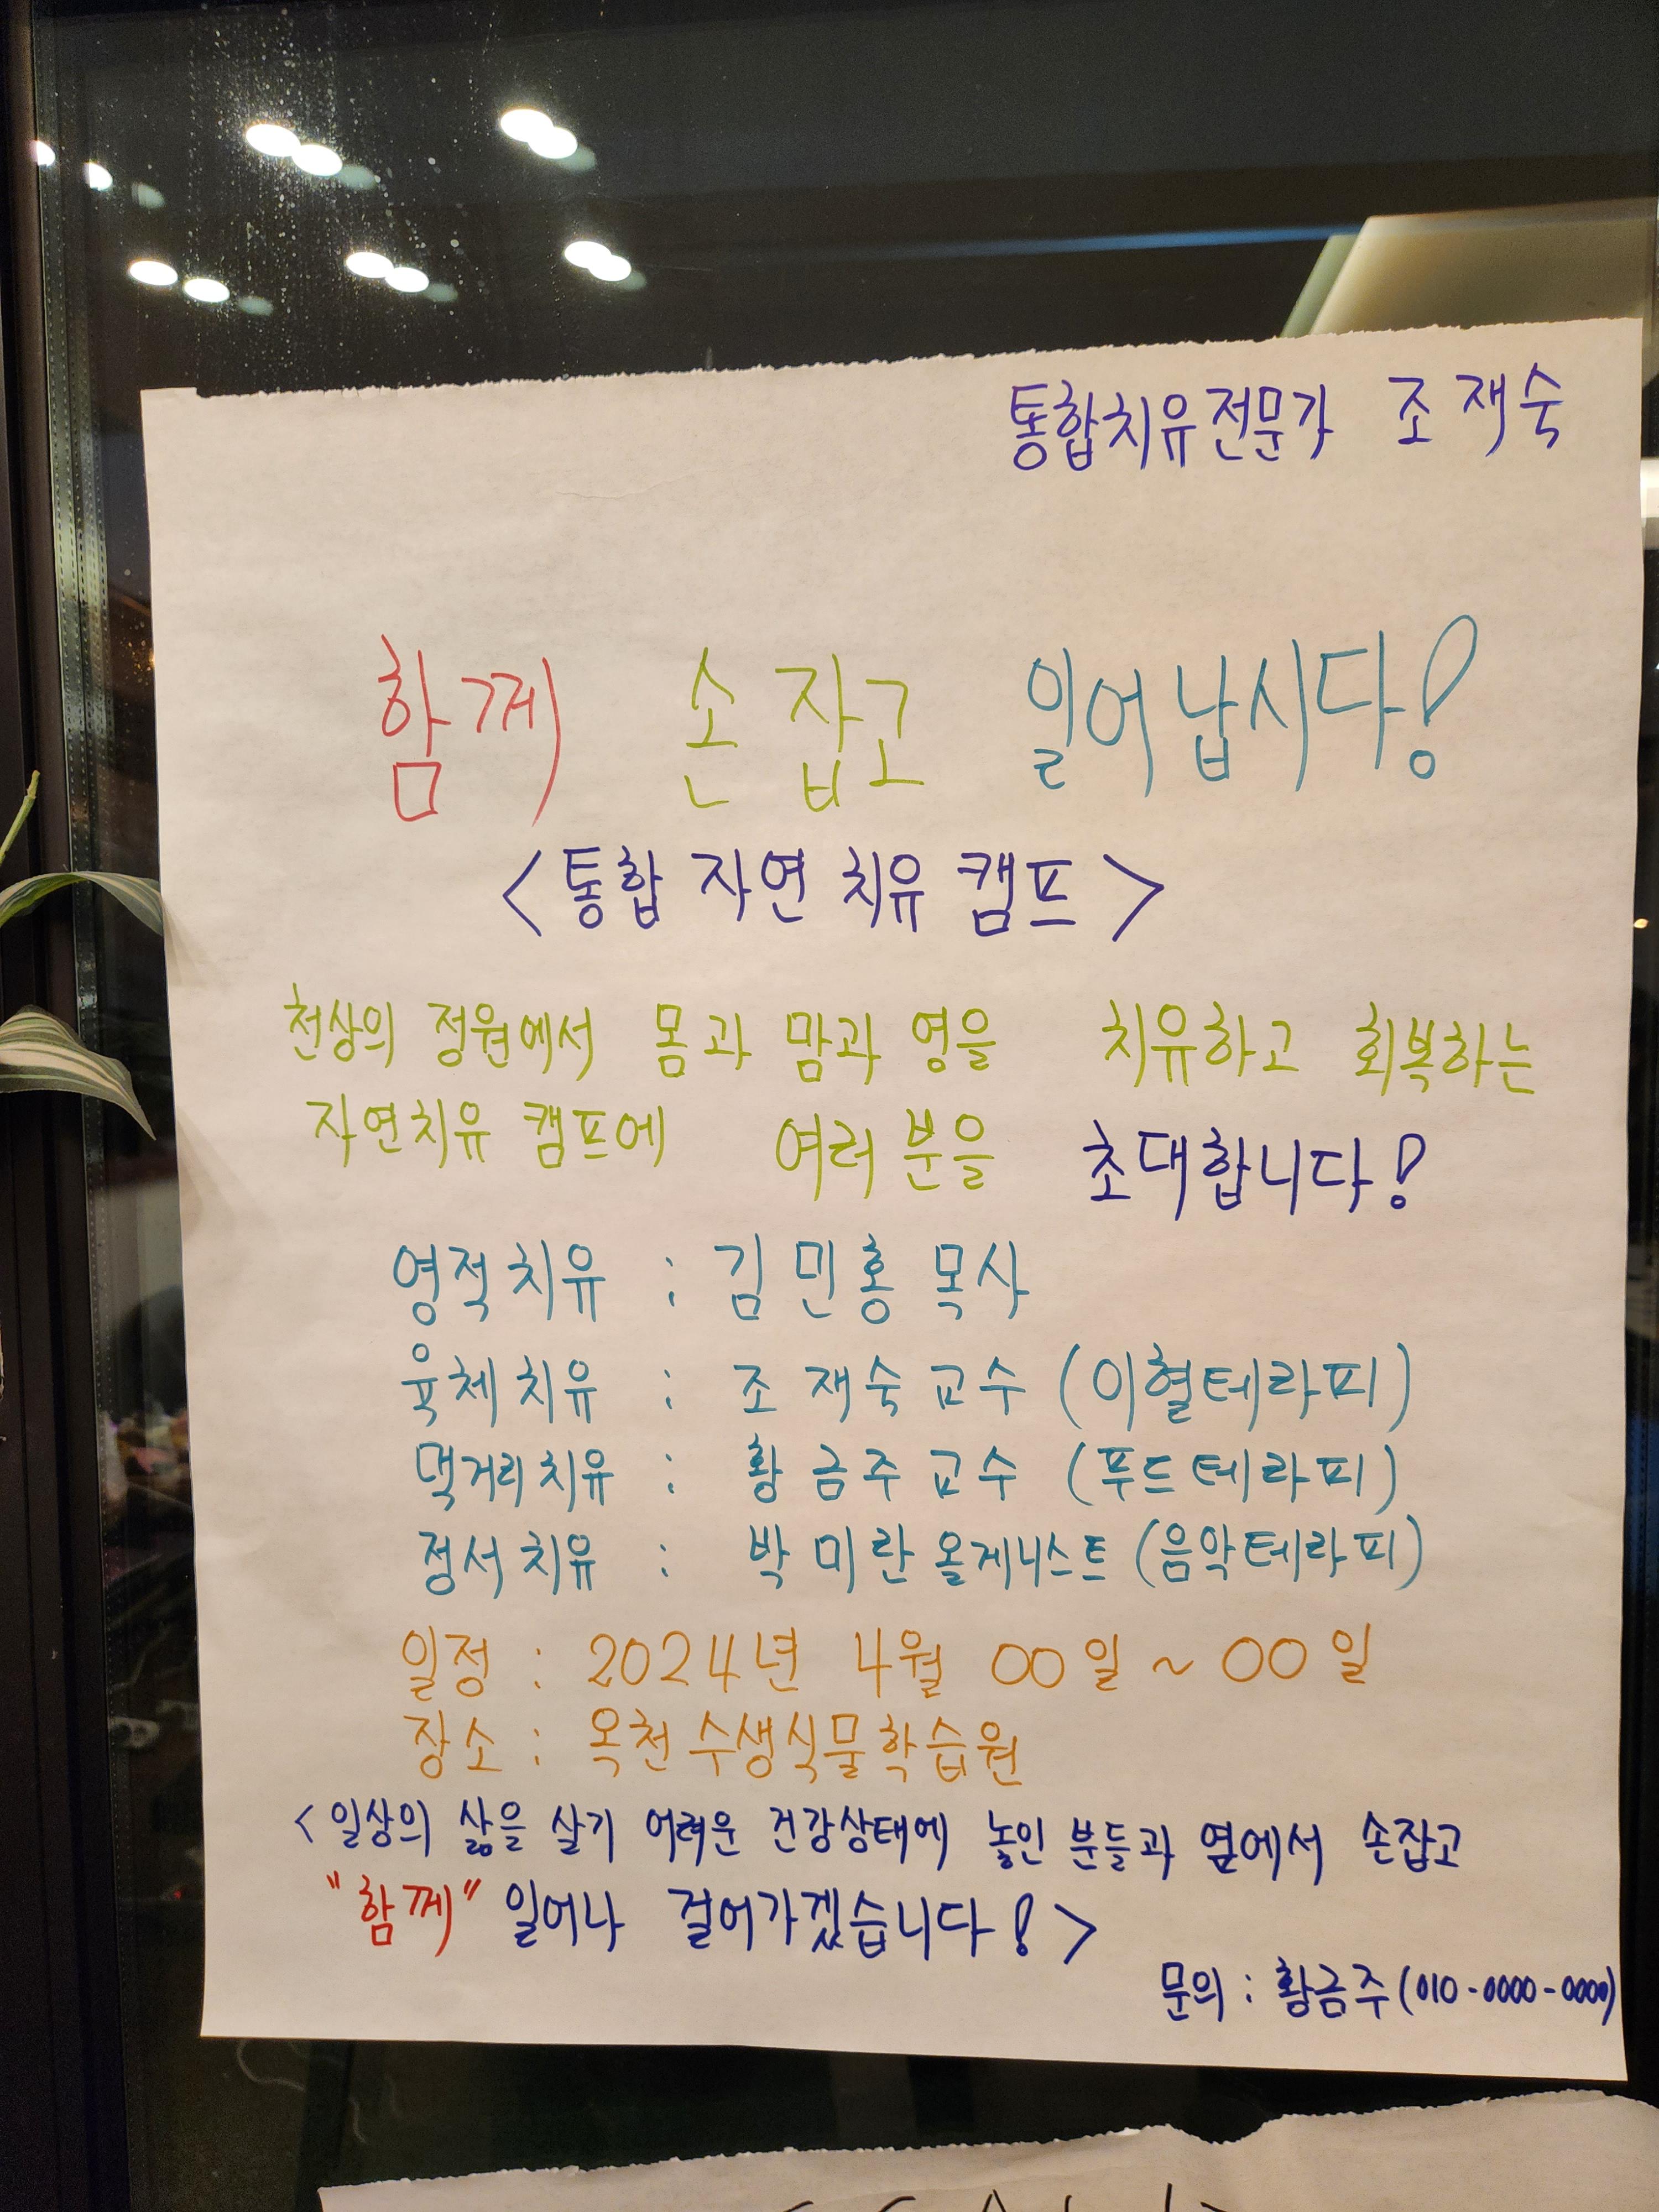 통합치유전문가 조재숙
함께 손잡고 일어납시다!
<통합 자연 치유 캠프>
천상의 정원에서 몸과 맘과 영을 치유하고 회복하는
자연치유 캠프에 여러분을 초대합니다!
영적치유 : 김민홍 목사
육체치유 : 조재숙 교수 (이혈테라피)
먹거리치유 : 황금주 교수 (푸드테라피)
정서치유 : 박미란 올게니스트 (음악테라피)
일정 : 2024년 4월 00일 ~ 00일
장소 : 옥천 수생식물학습원
<일상의 삶을 살기 어려운 건강상태에 놓인 분들과 옆에서 손잡고
"함께" 일어나 걸어가겠습니다!>
문의 : 황금주 (010-0000-0000)